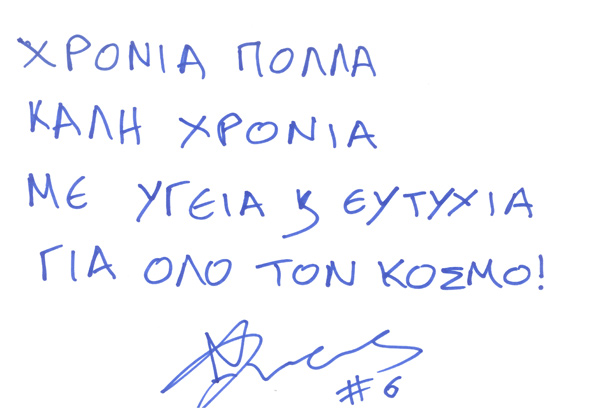 ΧΡΟΝΙΑ ΠΟΛΛΑ
ΚΑΛΗ ΧΡΟΝΙΑ
ΜΕ ΥΓΕΙΑ ϗ ΕΥΤΥΧΙΑ
ΓΙΑ ΟΛΟ ΤΟΝ ΚΟΣΜΟ!
#6